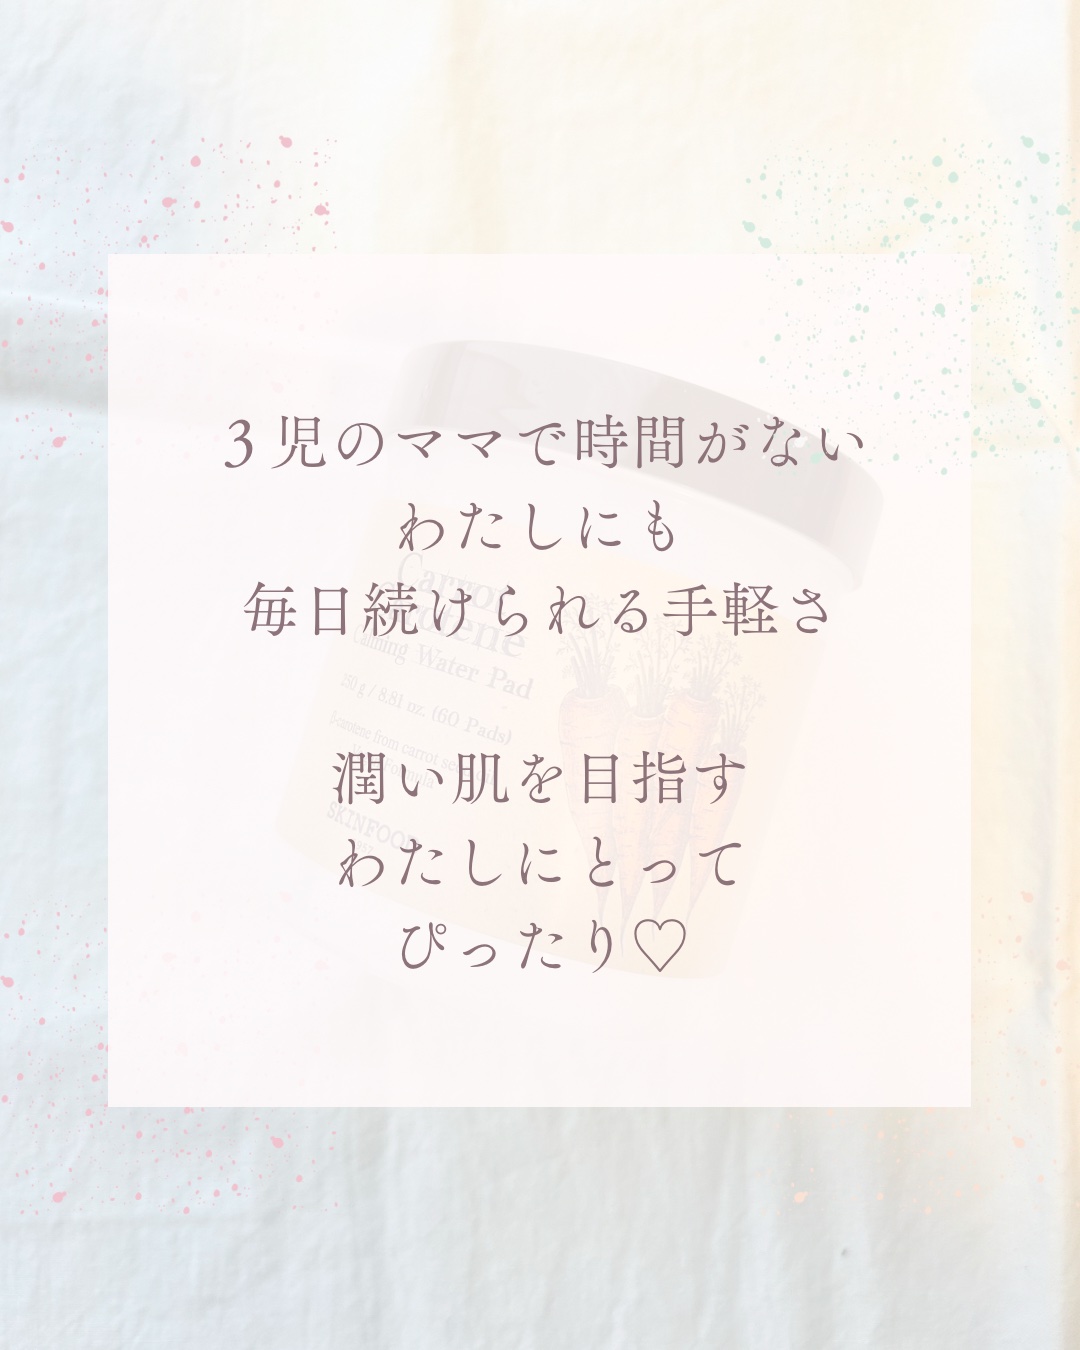 ３児のママで時間がない
わたしにも
毎日続けられる手軽さ
潤い肌を目指す
わたしにとって
ぴったり♡
Carrot
Carotene
Calming Water Pad
250 g / 8.81 oz. (60 Pads)
β-carotene from carrot
Formula
SKINFOOD